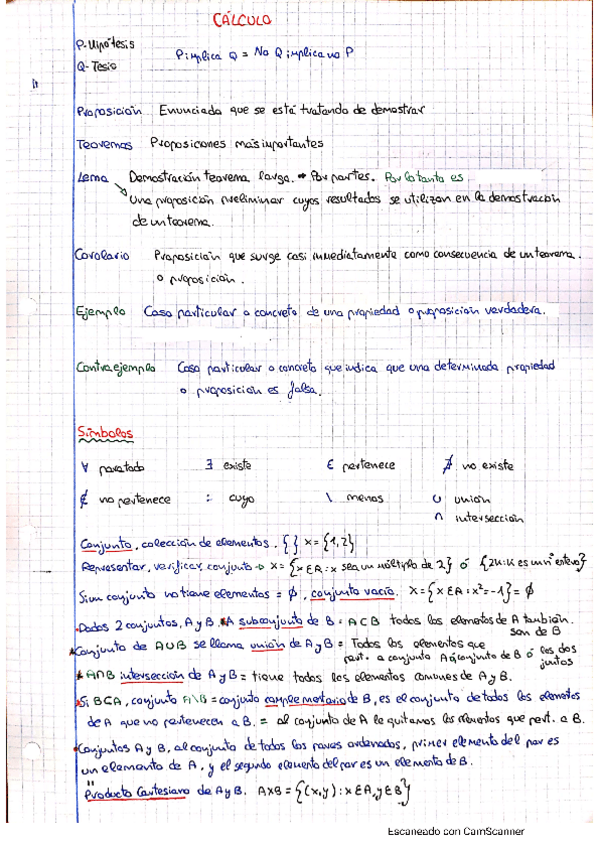 CÁLCULO
P- Hipótesis
P implica Q = No Q implica no P
Q- Tesis
Proposición Enunciado que se está tratando de demostrar
Teoremas Proposiciones más importantes
Lema Demostración teorema larga. → Por partes. Por lo tanto es
Una proposición preliminar cuyos resultados se utilizan en la demostración
de un teorema.
Corolario Proposición que surge casi inmediatamente como consecuencia de un teorema.
o proposición.
Ejemplo Caso particular o concreto de una propiedad o proposición verdadera.
Contraejemplo Caso particular o concreto que indica que una determinada propiedad
o proposición es falsa.
Símbolos
∀ para todo ∃ existe ∈ pertenece ∄ no existe
∉ no pertenece : cuyo \ menos ∪ unión
∩ intersección
Conjunto, colección de elementos. { } X = {1,2}
Representar, verificar conjunto → X = {x ∈ A : x sea un múltiplo de 2} ó {2K : K es un nº entero}
Si un conjunto no tiene elementos = ∅, conjunto vacío. X = {x ∈ A : x² = -1} = ∅
Dados 2 conjuntos, A y B. A subconjunto de B = A ⊂ B todos los elementos de A también
son de B
Conjunto de A∪B se llama unión de A y B = Todos los elementos que
pert. a conjunto A ó conjunto de B ó los dos
juntos
A∩B intersección de A y B = tiene todos los elementos comunes de A y B.
Si B⊂A, conjunto A\B = conjunto complementario de B, es el conjunto de todos los elementos
de A que no pertenecen a B. = al conjunto de A le quitamos los elementos que pert. a B.
Conjuntos A y B, al conjunto de todos los pares ordenados, primer elemento del par es
un elemento de A, y el segundo elemento del par es un elemento de B.
"
Producto Cartesiano de A y B. A×B = {(x,y) : x ∈ A, y ∈ B}
Escaneado con CamScanner